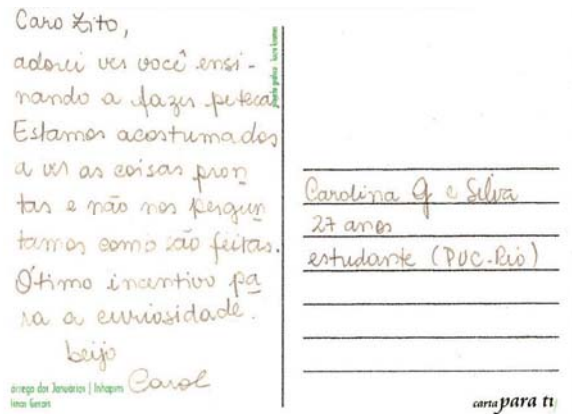 Caro Zito,
adorei ver você ensi-
nando a fazer peteca
Estamos acostumados
a ver as coisas pron
tas e não nos pergun
tamos como são feitas.
Ótimo incentivo pa
ra a curiosidade.
beijo
Carol
órrego dos Januários | Inhapim
inas Gerais
Carolina G e Silva
27 anos
estudante (PUC-Rio)
carta para ti